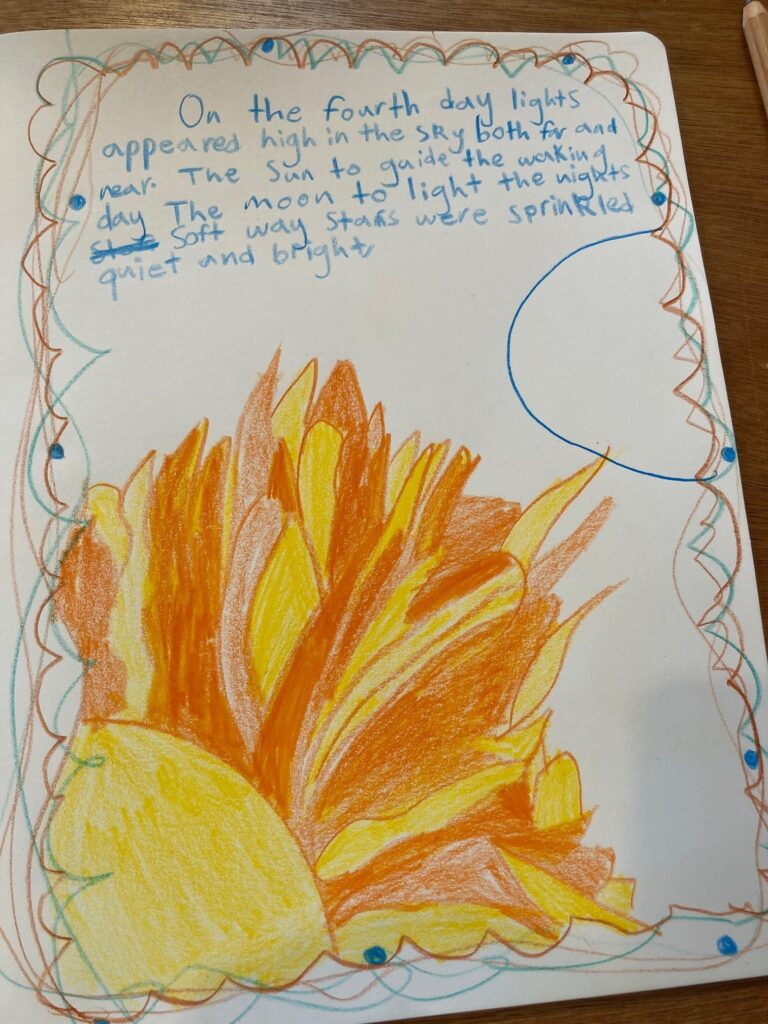 On the fourth day lights
appeared high in the sky both fir and
near. The Sun to guide the waking
day The moon to light the nights
Soft way Stars were sprinkled
quiet and bright